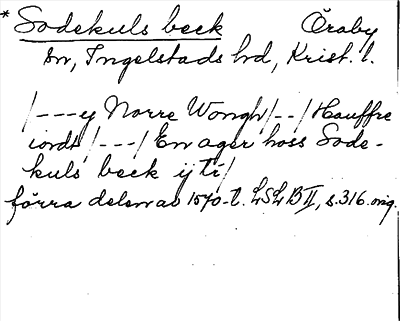 * Sodekuls beck Öraby
sn, Ingelstads hd, Krist. l.
/---y Norre Wongh/--/Hauffre
iordt/---/En ager hoss Sode-
kuls beck ij ti/
förra delen av 1570-t. LSLBII, s.316.orig.